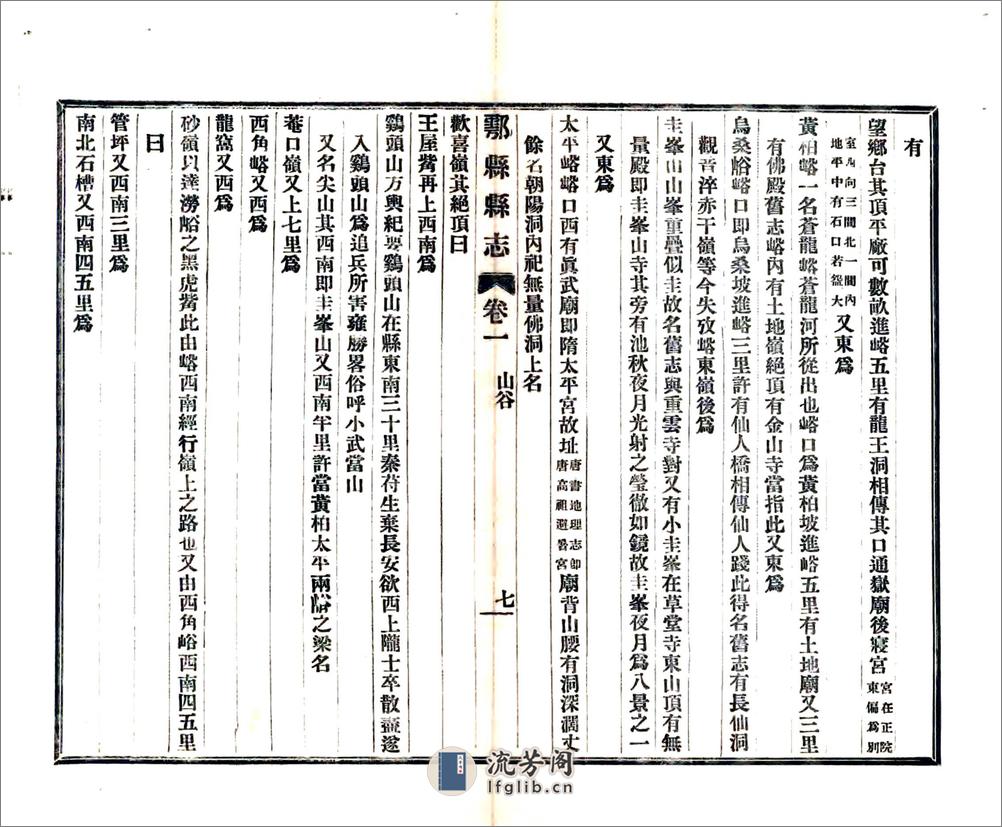 有
望鄉台其頂平廠可數畝進峪五里有龍王洞相傳其口通獄廟後寢宮宮在正院東偏爲別
室內向三間北一間內地平中有石口若盌大又東爲
黃柏峪一名蒼龍峪蒼龍河所從出也峪口爲黃柏坡進峪五里有土地廟又三里
有佛殿舊志峪內有土地嶺絕頂有金山寺當指此又東爲
烏桑峪峪口即烏桑坡進峪三里許有仙人橋相傳仙人踐此得名舊志有長仙洞
觀音洋亦干嶺等今失攷峪東嶺後爲
圭峯山山峯重疊似圭故名舊志與重雲寺對又有小圭峯在草堂寺東山頂有無
量殿即圭峯山寺其旁有池秋夜月光射之瑩徹如鏡故圭峯夜月爲八景之一
又東爲
太平峪峪口西有眞武廟即隋太平宮故址唐書地理志鄠唐高祖避暑宮廟背山腰有洞深濶丈
餘名朝陽洞內祀無量佛洞上名
鄠縣縣志 卷一 山谷 七
歡喜嶺其絕頂曰
王屋觜再上西南爲
鷄頭山方輿紀要鷄頭山在縣東南三十里秦苻生棄長安欲西上隴士卒散盡遂
入鷄頭山爲追兵所害雍勝畧俗呼小武當山
又名尖山其西南即圭峯山又西南半里許當黃柏太平兩峪之梁名
菴口嶺又上七里爲
西角峪又西爲
龍窩又西爲
砂嶺以達澇峪之黑虎觜此由峪西南經行嶺上之路也又由西角峪西南四五里
曰
管坪又西南三里爲
南北石槽又西南四五里爲
流芳阁
lfglib.cn